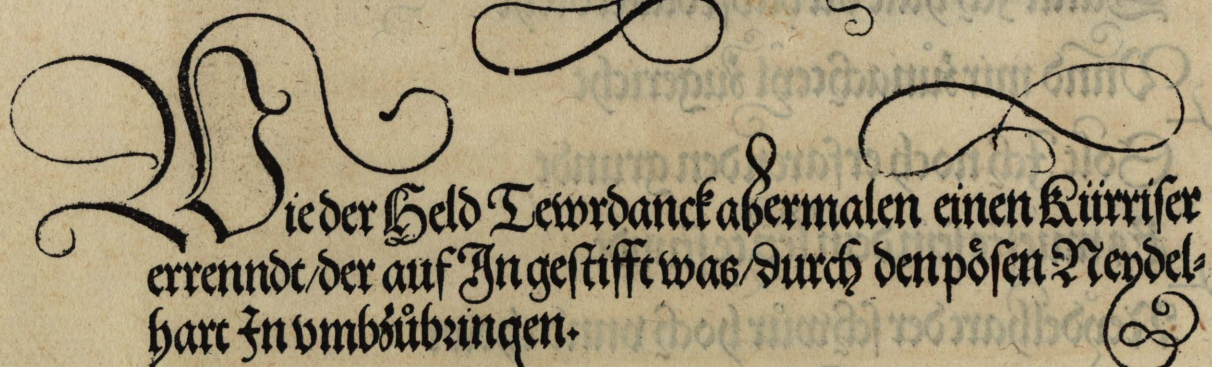 Wie der Held Tewrdanck abermalen einen Kürriser
errenndt/der auf In gestifft was/durch den pösen Neydel-
hart In vmbzůbringen.